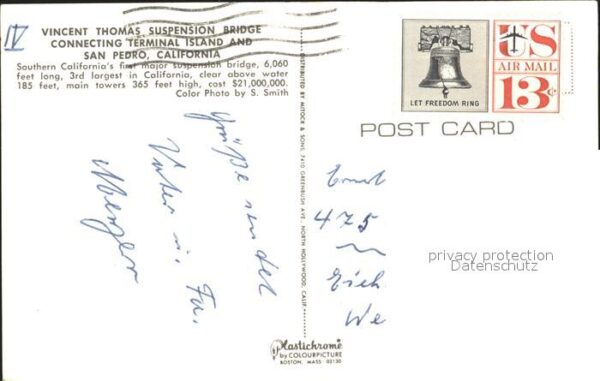 IV
VINCENT THOMAS SUSPENSION BRIDGE
CONNECTING TERMINAL ISLAND AND
SAN PEDRO, CALIFORNIA
Southern California's first major suspension bridge, 6,060
feet long, 3rd largest in California, clear above water
185 feet, main towers 365 feet high, cost $21,000,000.
Color Photo by S. Smith
LET FREEDOM RING
US
AIR MAIL
13c
POST CARD
Grüße sendet
DISTRIBUTED BY MITOCK & SONS, 7410 GREENBUSH AVE., NORTH HOLLYWOOD, CALIF.
475
We
privacy protection
Datenschutz
Plastichrome
by COLOURPICTURE
BOSTON, MASS 02130